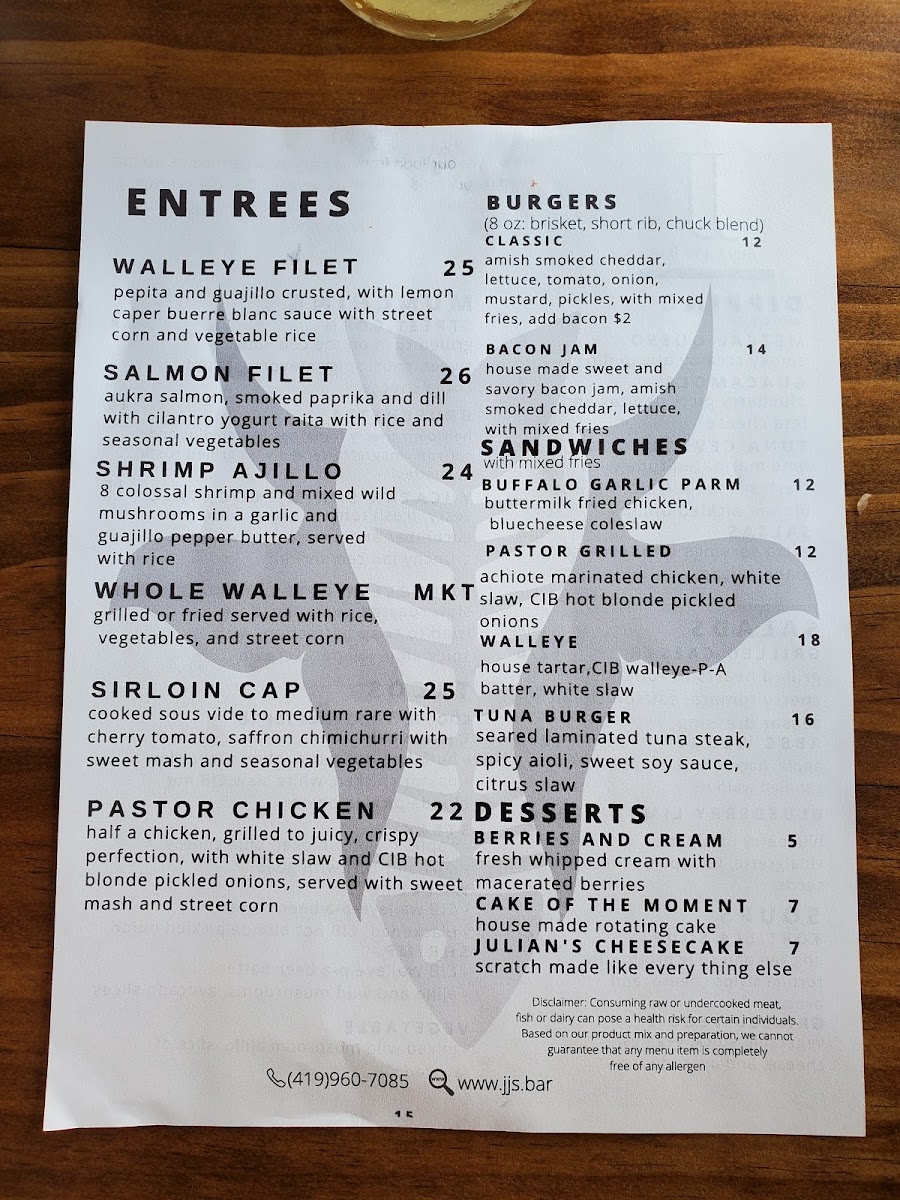 ENTREES
WALLEYE FILET 25
pepita and guajillo crusted, with lemon
caper buerre blanc sauce with street
corn and vegetable rice
SALMON FILET 26
aukra salmon, smoked paprika and dill
with cilantro yogurt raita with rice and
seasonal vegetables
SHRIMP AJILLO 24
8 colossal shrimp and mixed wild
mushrooms in a garlic and
guajillo pepper butter, served
with rice
WHOLE WALLEYE MKT
grilled or fried served with rice,
vegetables, and street corn
SIRLOIN CAP 25
cooked sous vide to medium rare with
cherry tomato, saffron chimichurri with
sweet mash and seasonal vegetables
PASTOR CHICKEN 22
half a chicken, grilled to juicy, crispy
perfection, with white slaw and CIB hot
blonde pickled onions, served with sweet
mash and street corn
BURGERS
(8 oz: brisket, short rib, chuck blend)
CLASSIC 12
amish smoked cheddar,
lettuce, tomato, onion,
mustard, pickles, with mixed
fries, add bacon $2
BACON JAM 14
house made sweet and
savory bacon jam, amish
smoked cheddar, lettuce,
with mixed fries
SANDWICHES
with mixed fries
BUFFALO GARLIC PARM 12
buttermilk fried chicken,
bluecheese coleslaw
PASTOR GRILLED 12
achiote marinated chicken, white
slaw, CIB hot blonde pickled
onions
WALLEYE 18
house tartar,CIB walleye-P-A
batter, white slaw
TUNA BURGER 16
seared laminated tuna steak,
spicy aioli, sweet soy sauce,
citrus slaw
DESSERTS
BERRIES AND CREAM 5
fresh whipped cream with
macerated berries
CAKE OF THE MOMENT 7
house made rotating cake
JULIAN'S CHEESECAKE 7
scratch made like every thing else
Disclaimer: Consuming raw or undercooked meat,
fish or dairy can pose a health risk for certain individuals.
Based on our product mix and preparation, we cannot
guarantee that any menu item is completely
free of any allergen
(419)960-7085 www.jjs.bar